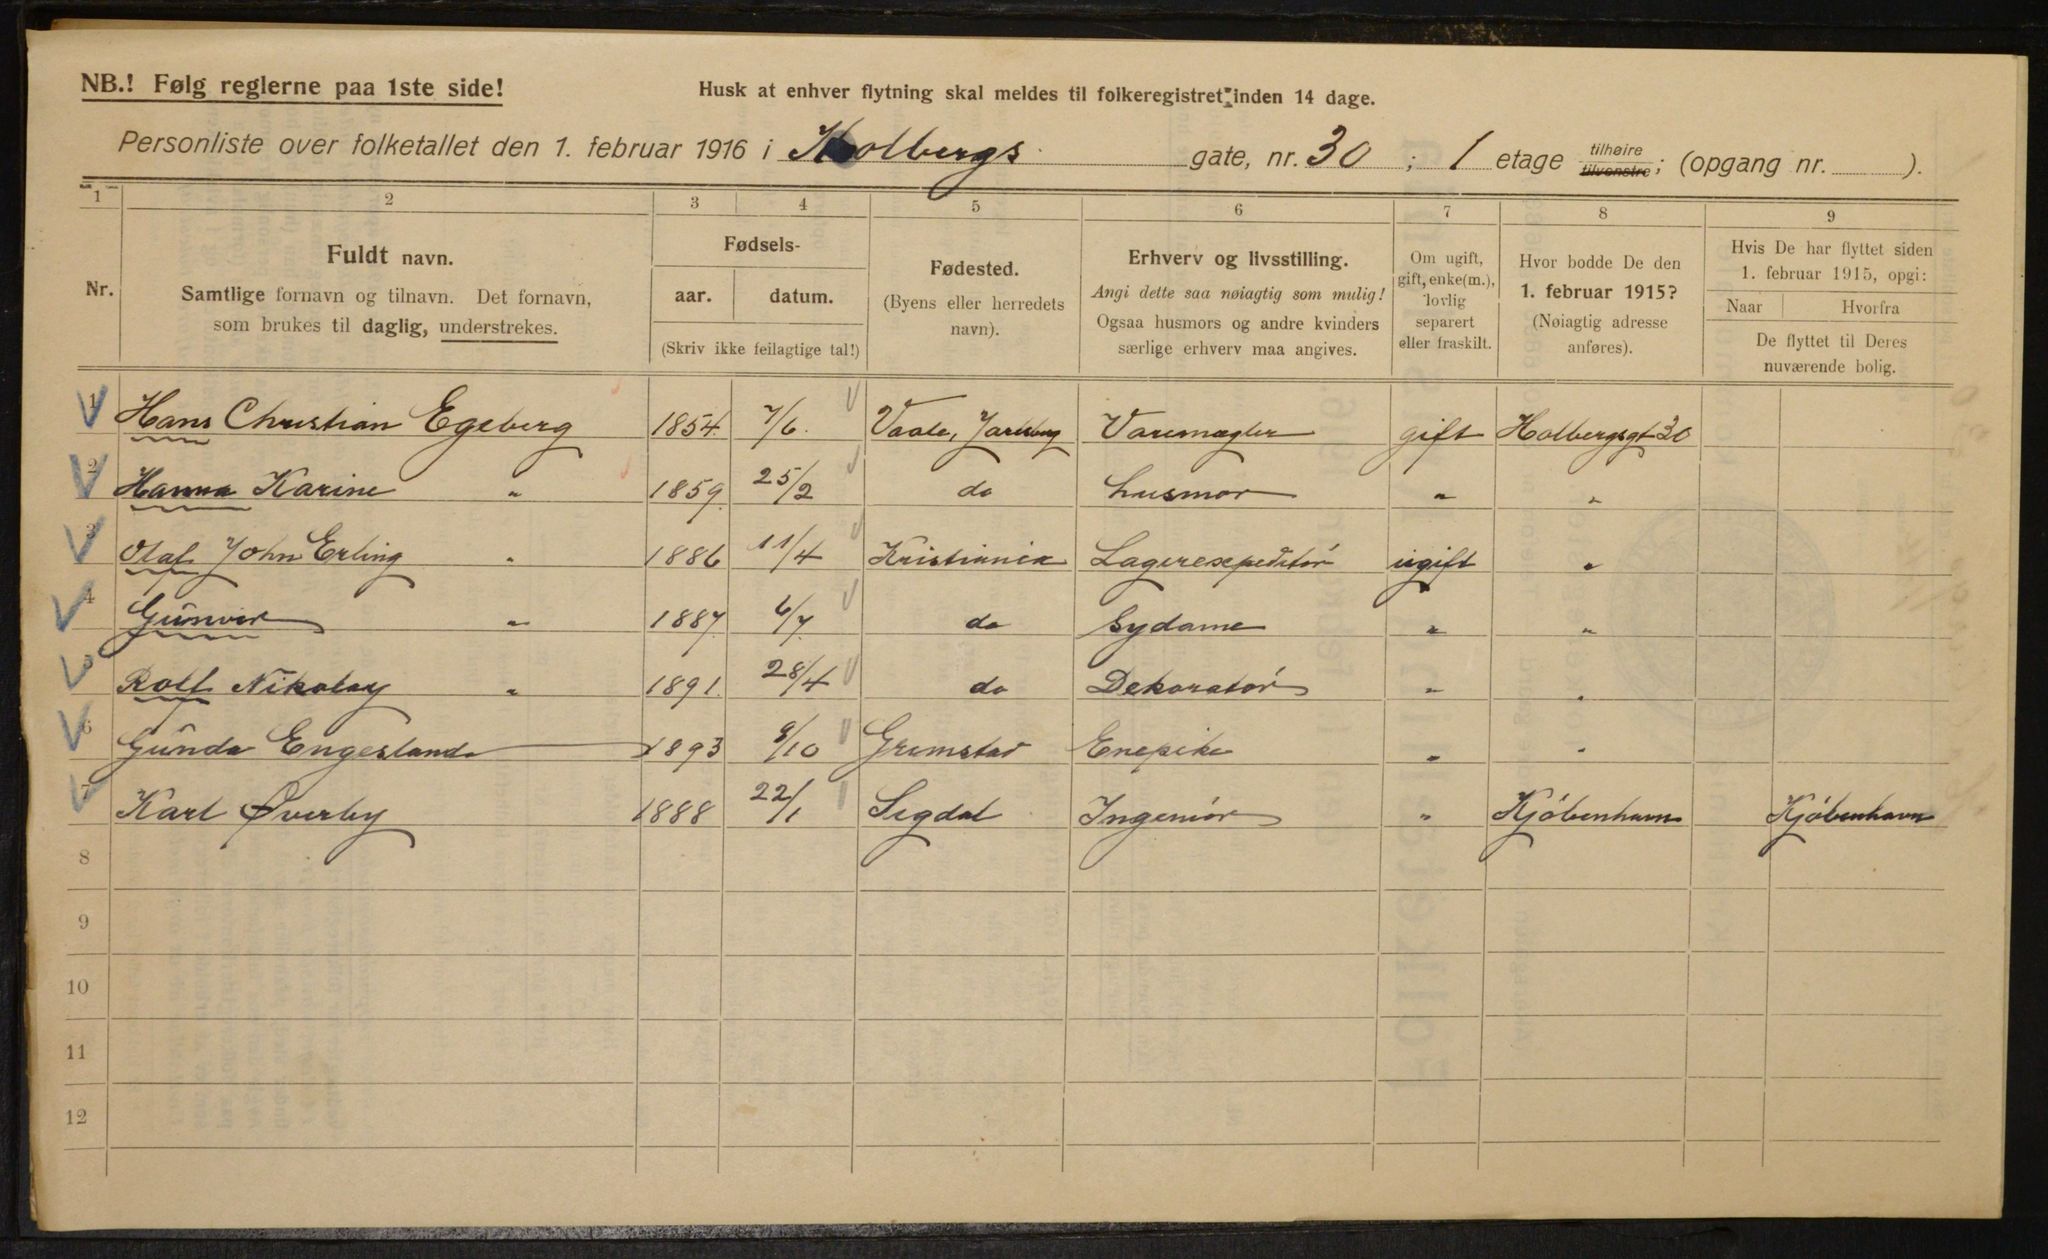 NB.! Følg reglerne paa 1ste side!
Husk at enhver flytning skal meldes til folkeregistret inden 14 dage.
Personliste over folketallet den 1. februar 1916 i Holbergs gate, nr. 30 ; 1 etage tilhøire tilvenstre; (opgang nr. ).
1 2 3 4 5 6 7 8 9
Nr.
Fuldt navn.
Samtlige fornavn og tilnavn. Det fornavn,
som brukes til daglig, understrekes.
Fødsels-
aar. datum.
(Skriv ikke feilagtige tal!)
Fødested.
(Byens eller herredets
navn).
Erhverv og livsstilling.
Angi dette saa nøiagtig som mulig!
Ogsaa husmors og andre kvinders
særlige erhverv maa angives.
Om ugift,
gift, enke(m.),
lovlig
separert
eller fraskilt.
Hvor bodde De den
1. februar 1915?
(Nøiagtig adresse
anføres).
Hvis De har flyttet siden
1. februar 1915, opgi:
Naar Hvorfra
De flyttet til Deres
nuværende bolig.
1 Hans Christian Egeberg 1854. 7/6. Vaale, Jarlsberg Varemægler gift Holbergsgt 30
2 Hanna Karine " 1859. 25/2 do husmor " "
3 Olaf John Erling " 1886 11/4 Kristiania Lagerexpeditór ugift "
4 Gunvor " 1887. 6/7. do Sydame " "
5 Rolf Nikolay " 1891. 28/4 do Dekoratór " "
6 Gunda Engesland 1893 8/10 Grimstad Enepike " "
7 Karl Øverby 1888 22/1 Sigdal Ingeniór " Kjóbenhavn Kjóbenhavn
8
9
10
11
12